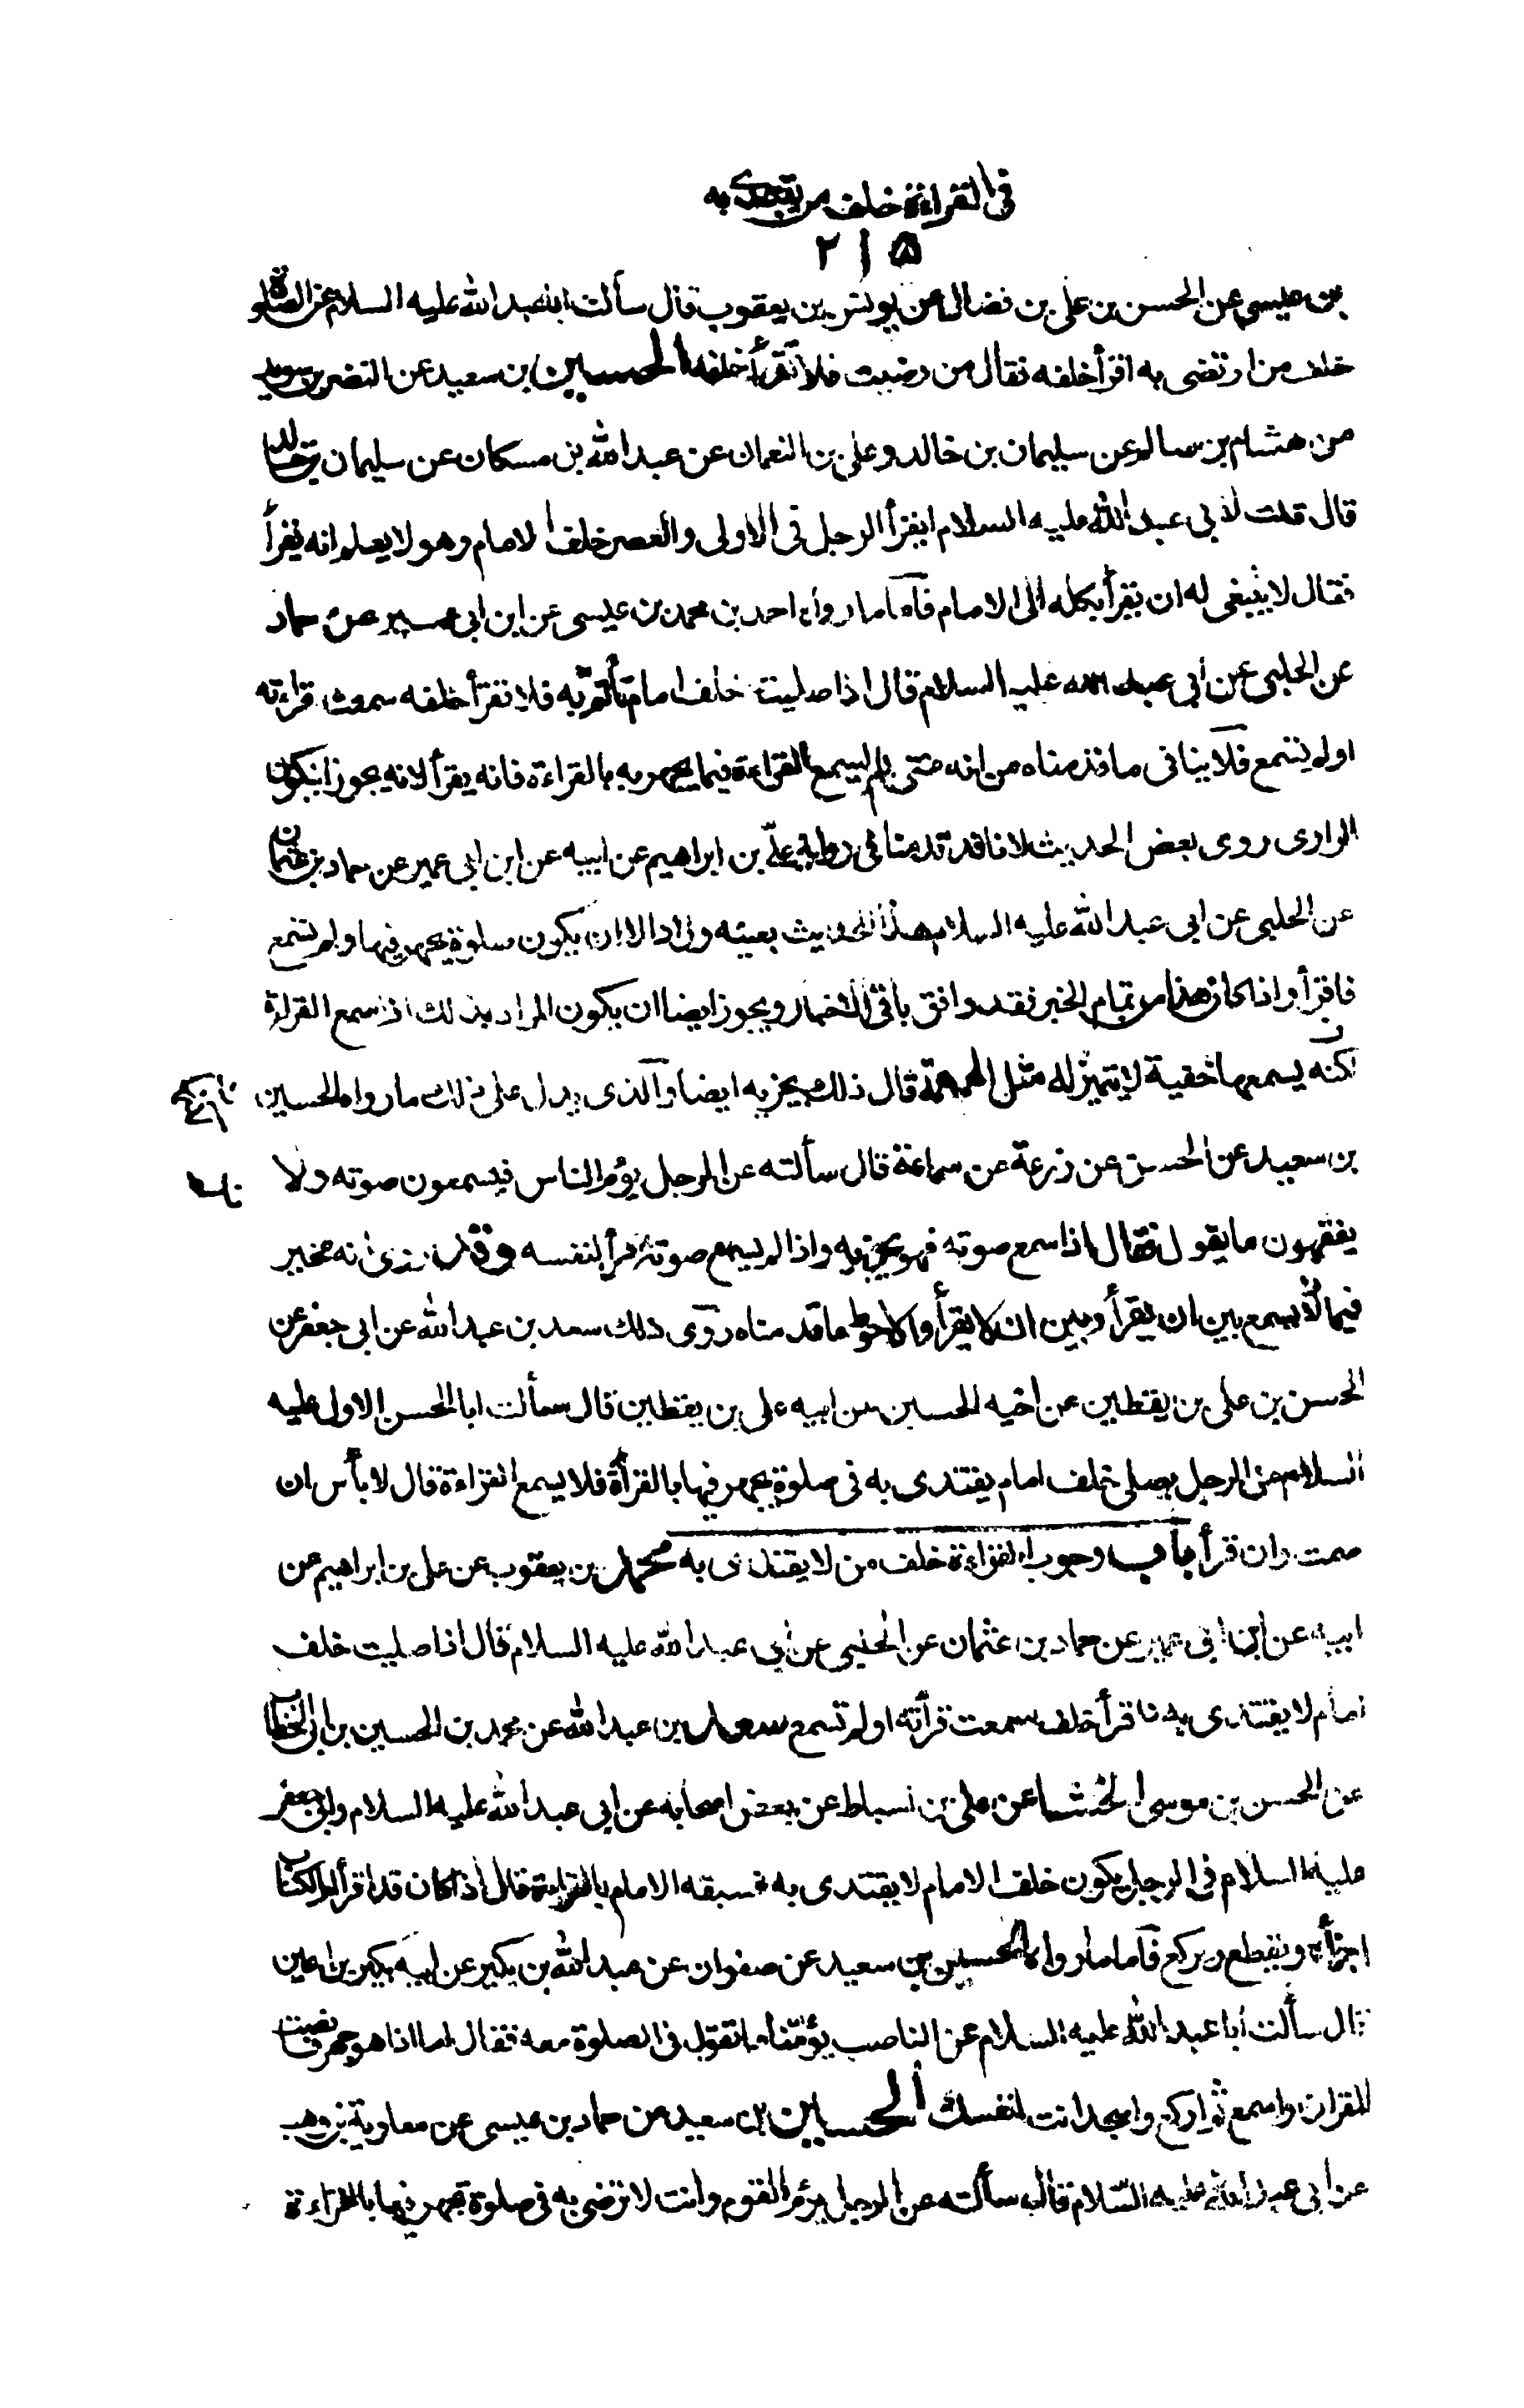 فى القراءة خلف من يقتدى به
٢١٥
بن عيسى عن الحسن بن على بن فضال عن يونس بن يعقوب قال سألت ابا عبد الله عليه السلام عن الصلوة
خلف من ارتضى به اقرأ خلفه فقال من رضيت فلا تقرأ خلفه الحسين بن سعيد عن النضر بن سويد
عن هشام بن سالم عن سليمان بن خالد وعلى بن النعمان عن عبد الله بن مسكان عن سليمان بن خالد
قال قلت لابى عبد الله عليه السلام ايقرأ الرجل فى الاولى والعصر خلف الامام وهو لا يعلم انه يقرأ
فقال لا ينبغى له ان يقرأ يكله الى الامام فاما ما رواه احمد بن محمد بن عيسى عن ابن ابى عمير عن حماد
عن الحلبى عن ابى عبد الله عليه السلام قال اذا صليت خلف امام تأتم به فلا تقرأ خلفه سمعت قراءته
او لم تسمع فلا ينافى ما قدمناه من انه متى لم يسمع القراءة فيما يجهر به بالقراءة فانه يقرأ لانه يجوز ان يكون
الراوى روى بعض الحديث لانا قد قدمنا فى رواية على بن ابراهيم عن ابيه عن ابن ابى عمير عن حماد بن عثمان
عن الحلبى عن ابى عبد الله عليه السلام هذا الحديث بعينه وزاد الا ان يكون صلوة يجهر فيها ولم تسمع
فاقرأ واذا كان هذا من تمام الخبر فقد وافق باقى الاخبار ويجوز ايضا ان يكون المراد بذلك اذا سمع القراءة
لكنه يسمعها خفية لا يتميز له مثل الهمهمة قال ذلك يجزيه ايضا والذى يدل على ذلك ما رواه الحسين
بن سعيد عن الحسن عن زرعة عن سماعة قال سألته عن الرجل يؤم الناس فيسمعون صوته ولا
يفقهون ما يقول فقال اذا سمع صوته فهو يجزيه واذا لم يسمع صوته قرأ لنفسه وقد روى انه مخير
فيما لا يسمع بين ان يقرأ وبين ان لا يقرأ والاحوط ما قدمناه روى ذلك سعد بن عبد الله عن ابى جعفر عن
الحسن بن على بن يقطين عن اخيه الحسين عن ابيه على بن يقطين قال سألت ابا الحسن الاول عليه
السلام عن الرجل يصلى خلف امام يقتدى به فى صلوة يجهر فيها بالقرأة فلا يسمع القراءة قال لا بأس ان
صمت وان قرأ باب وجوب القراءة خلف من لا يقتدى به محمد بن يعقوب عن على بن ابراهيم عن
ابيه عن ابن ابى عمير عن حماد بن عثمان عن الحلبى عن ابى عبد الله عليه السلام قال اذا صليت خلف
امام لا يقتدى به فاقرأ خلفه سمعت قرأته او لم تسمع سعد بن عبد الله عن محمد بن الحسين بن ابى الخطاب
عن الحسن بن موسى الخشاب عن على بن اسباط عن بعض اصحابه عن ابى عبد الله عليه السلام وابى جعفر
عليه السلام فى الرجل يكون خلف الامام لا يقتدى به فسبقه الامام بالقراءة قال اذا كان قد اقرأ ام الكتاب
اجزأه ويقطع ويركع فاما ما رواه الحسين بن سعيد عن صفوان عن عبد الله بن بكير عن ابيه بكير بن اعين
قال سألت ابا عبد الله عليه السلام عن الناصب يؤمنا ما تقول فى الصلوة معه فقال اما اذا هو جهر فانصت
للقران واسمع ثم اركع واسجد انت لنفسك الحسين بن سعيد عن حماد بن عيسى عن معاوية بن وهب
عن ابى عبد الله عليه السلام قال سألته عن الرجل يؤم القوم وانت لا ترضى به فى صلوة تجهر فيها بالقراءة